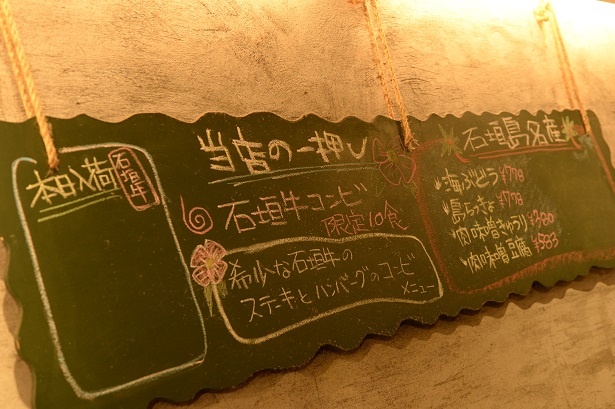 本日入荷
石垣牛
当店の一押し
石垣牛コンビ
限定10食
希少な石垣牛の
ステーキとハンバーグのコービ
メニュー
石垣島名産
海ぶどう ¥778
島らっきょ ¥778
肉味噌きゅうり ¥480
肉味噌豆腐 ¥583